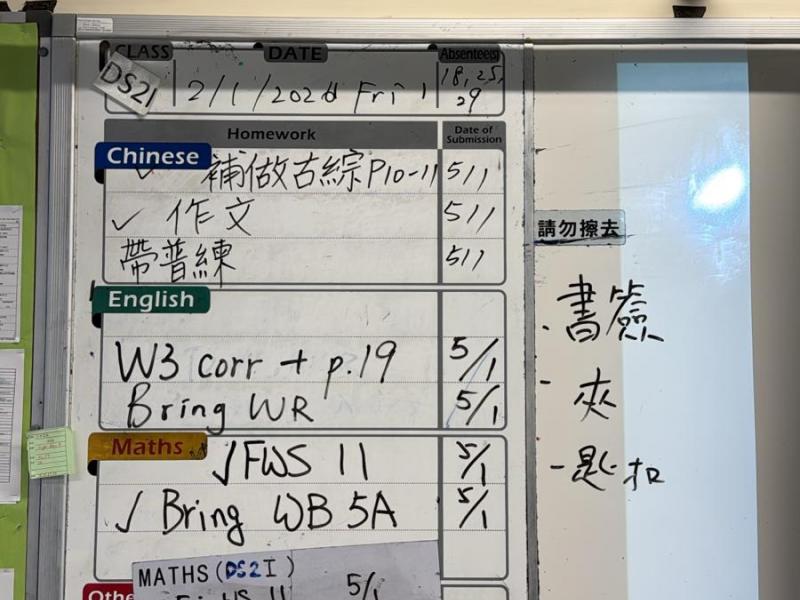 CLASS DATE Absentee(s)
DS21 2/1/2026 Fri 18, 25,
29
Homework Date of Submission
Chinese
✓ 補做古綜P10-11 5/1
✓ 作文 5/1
帶普練 5/1
English
W3 corr + p.19 5/1
Bring WR 5/1
Maths
✓ FWS 11 5/1
✓ Bring WB 5A 5/1
MATHS (DS2 I)
WS 11 5/1
Othe
請勿擦去
· 書簽
- 夾
- 匙扣